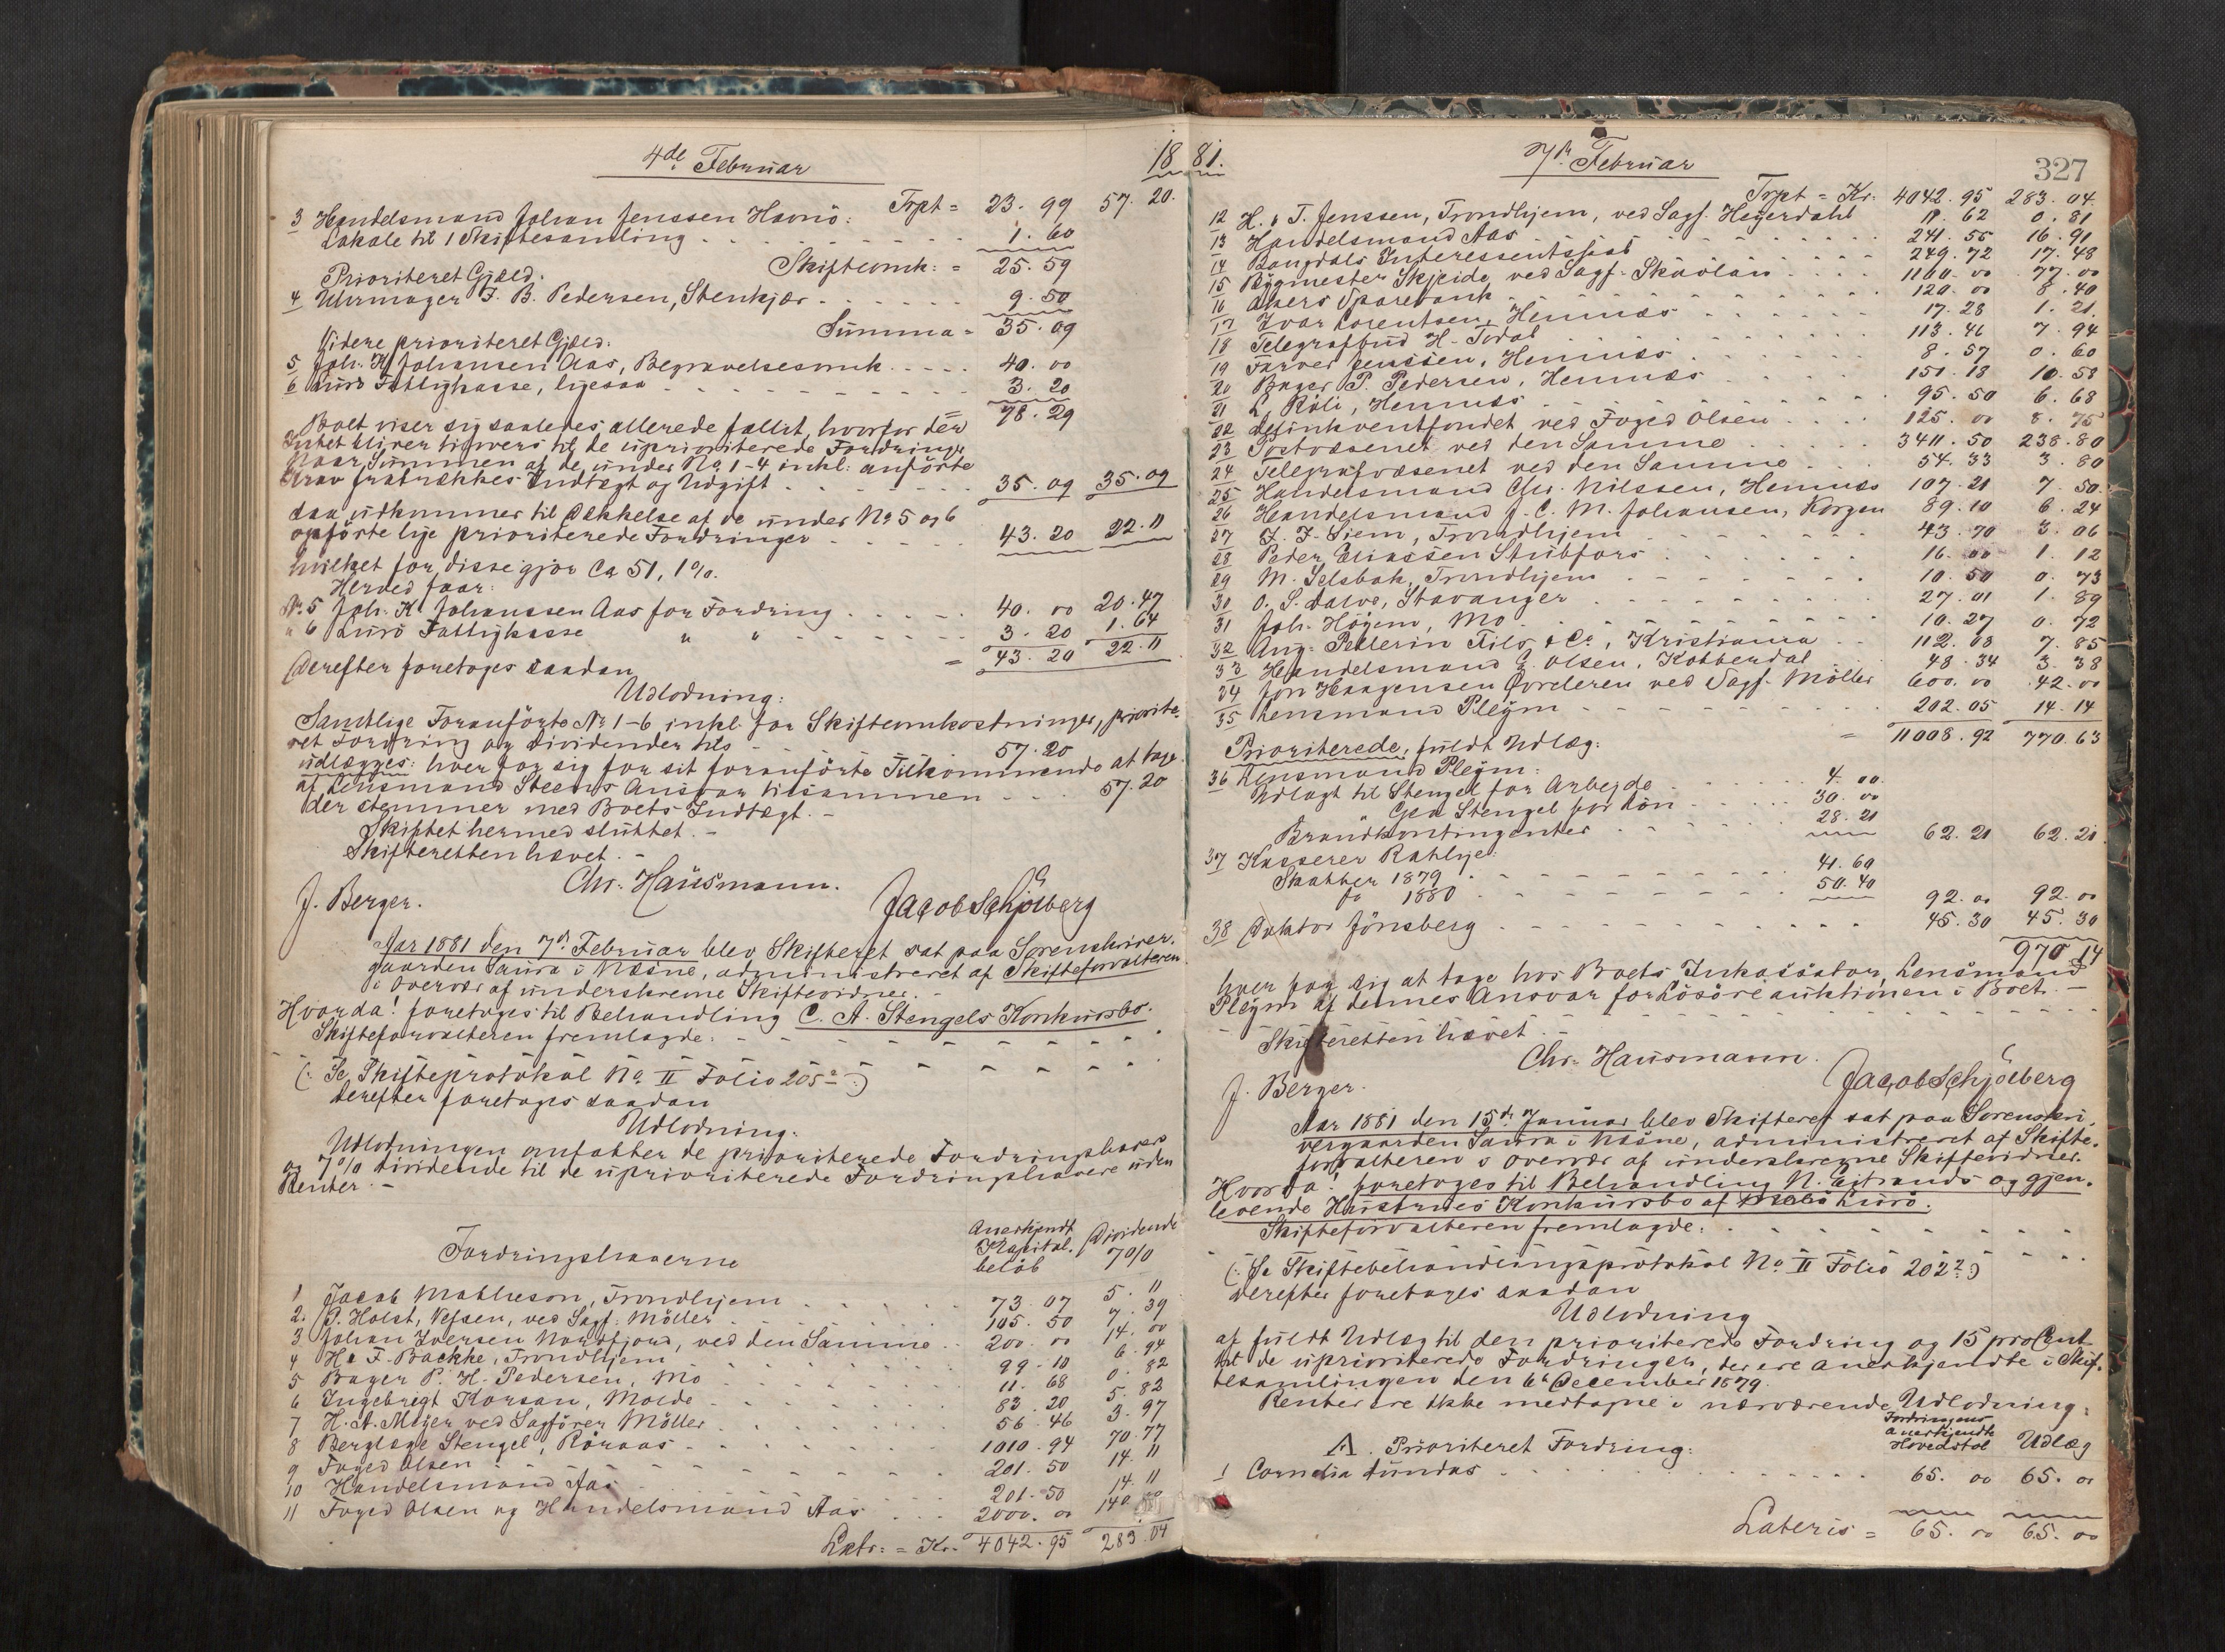 4de Februar
1881.
Trpt = 23.99 57.20.
3 Handelsmand Johan Jenssen Havnö:
Lokale til 1 Skiftesamling 1.60
Skifteomk: = 25.59
Prioriteret Gjæld.
4 Uhrmager J. B. Pedersen, Stenkjær 9.50
Summa = 35.09
Videre prioriteret Gjæld:
5 Joh. K. Johansen Aas, Begravelsesomk. 40.00
6 Lurö Fattigkasse, ligesaa 3.20
= 78.29
Boet viser sig saaledes allerede fallit, hvorfor der
Intet bliver tilovers til de uprioriterede Fordringer
Naar Summen af de under No 1-4 inkl: anförte
Krav fratrækkes Indtægt og Udgift 35.09 35.09
saa udkommer til Dækkelse af de under No 5 og 6
opförte lige prioriterede Fordringer 43.20 22.11
hvilket for disse gjör Ca 51,1 %.
Herved faar:
No 5 Joh. K. Johanssen Aas for Fordring 40.00 20.47
" 6 Lurö Fattigkasse " " 3.20 1.64
= 43.20 22.11
Derefter foretoges saadan
Udlodning:
Samtlige Foranförte No 1-6 inkl. for Skifteomkostninger, priorite-
ret Fordring og Dividender tils 57.20
udlægges: hver for sig for sit foranförte Tilkommende at tage
af Lensmand Steens Ansvar tilsammen 57.20
der stemmer med Boets Indtægt. -
Skiftet hermed sluttet. -
Skifteretten hævet. -
Chr. Hausmann.
J. Berger.
Jacob Schjölberg
Aar 1881 den 7de Februar blev Skifteret sat paa Sorenskriver-
gaarden Saura i Næsne, administreret af Skifteforvalteren
i Overvær af underskrevne Skiftevidner. -
Hvorda! foretoges til Behandling C. A. Stengels Konkursbo.
Skifteforvalteren fremlagde:
(: Se Skifteprotokol No II Folio 205 a :)
derefter foretoges saadan
Udlodning:
Udlodningen omfatter de prioriterede Fordringshaver
og 7% Dividende til de uprioriterede Fordringshavere uden
Renter. -
Fordringshaverne
Anerkjendt Kapital. belöb
Dividende 7%
1 Jacob Matheson, Trondhjem 73.07 5.11
2. P. Holst, Vefsen, ved Sagf. Möller 105.50 7.39
3 Johan Iversen Nordfjord, ved den Samme 200.00 14.00
4 H. & F. Backke, Trondhjem 99.10 6.94
5 Bager P. H. Pedersen, Mo 11.68 0.82
6 Ingebrigt Korsan, Molde 83.20 5.82
7 H. A. Meyer ved Sagförer Möller 56.46 3.97
8 Berglæge Stengel, Röraas 1010.94 70.77
9 Foged Olsen 201.50 14.11
10 Handelsmand Aas 201.50 14.11
11 Foged Olsen og Handelsmand Aas 2000.00 140.00
Latr: = Kr. 4042.95 283.04
7de Februar
327
Trpt = Kr. 4042.95 283.04
12 H. & T. Jenssen, Trondhjem, ved Sagf. Heyerdahl 11.62 0.81
13 Handelsmand Aas 241.55 16.91
14 Bangdals Interessentskab 249.72 17.48
15 Bygmester Skjeide ved Sagf. Skaolan 1100.00 77.00
16 Akers Sparebank 120.00 8.40
17 Ivar Lorentsen, Hemnæs 17.28 1.21.
18 Telegrafbud H. Todal 113.46 7.94
19 Farver Jenssen, Hemnæs 8.57 0.60
20 Bager P. Pedersen, Hemnæs 151.18 10.58
21 L. Röli, Hemnæs 95.50 6.68
22 Delinkventfondet ved Foged Olsen 125.00 8.75
23 Postvæsenet ved den Samme 3411.50 238.80
24 Telegrafvæsenet ved den Samme 54.33 3.80
25 Handelsmand Chr. Nilssen, Hemnæs 107.21 7.50.
26 Handelsmand J. C. M. Johansen, Korgen 89.10 6.24
27 L. J. Siem, Trondhjem 43.70 3.06
28 Peder Eliassen Stubfors 16.00 1.12
29 M. Selsbak, Trondhjem 10.50 0.73
30 O. S. Dalve, Stavanger 27.01 1.89
31 Joh. Högem, Mo 10.27 0.72
32 Aug. Pellerin Fils & Co, Kristiania 112.08 7.85
33 Handelsmand E. Olsen, Kobberdal 48.34 3.38
34 Jon Haagensen Övreleren ved Sagf. Möller 600.00 42.00
35 Lensmand Pleym 202.05 14.14
= 11008.92 770.63
Prioriterede, fuldt Udlæg:
36 Lensmand Pleym:
Udlagt til Stengel for Arbejde 4.00.
Gea Stengel for Lön 30.00
Brandkontingenter 28.21
62.21 62.21
37 Kasserer Rahlije:
Skatter 1879 41.60
Do 1880 50.40
92.00 92.00
38 Doktor Jönsberg 45.30 45.30
970.14
hver for sig at tage hos Boets Inkassator, Lensmand
Pleym af dennes Ansvar for Lösöreauktionen i Boet. -
Skifteretten hævet. -
Chr. Hausmann.
J. Berger.
Jacob Schjölberg
Aar 1881 den 15de Januar blev Skifteret sat paa Sorenskri-
vergaarden Saura i Næsne, administreret af Skifte-
forvalteren i Overvær af underskrevne Skiftevidner.
Hvorda! foretoges til Behandling N. Ejtrands og gjen-
levende Hustrues Konkursbo af Lurö.
Skifteforvalteren fremlagde:
(: Se Skiftebehandlingsprotokol No II Folio 202 :)
derefter foretoges saadan
Udlodning
af fuldt Udlæg til den prioriterede Fordring og 15 procent
til de uprioriterede Fordringer, der ere anerkjendte i Skif-
tesamlingen den 6te December 1879.
Renter ere ikke medtagne i nærværende Udlodning:
Fordringens anerkjendte Hovedstol
Udlæg
A. Prioriteret Fordring:
1 Cornelia Lundas 65.00 65.00
Lateris = 65.00 65.00